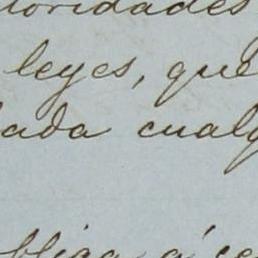 toridades
leyes, que
ada cualq
bliga á se